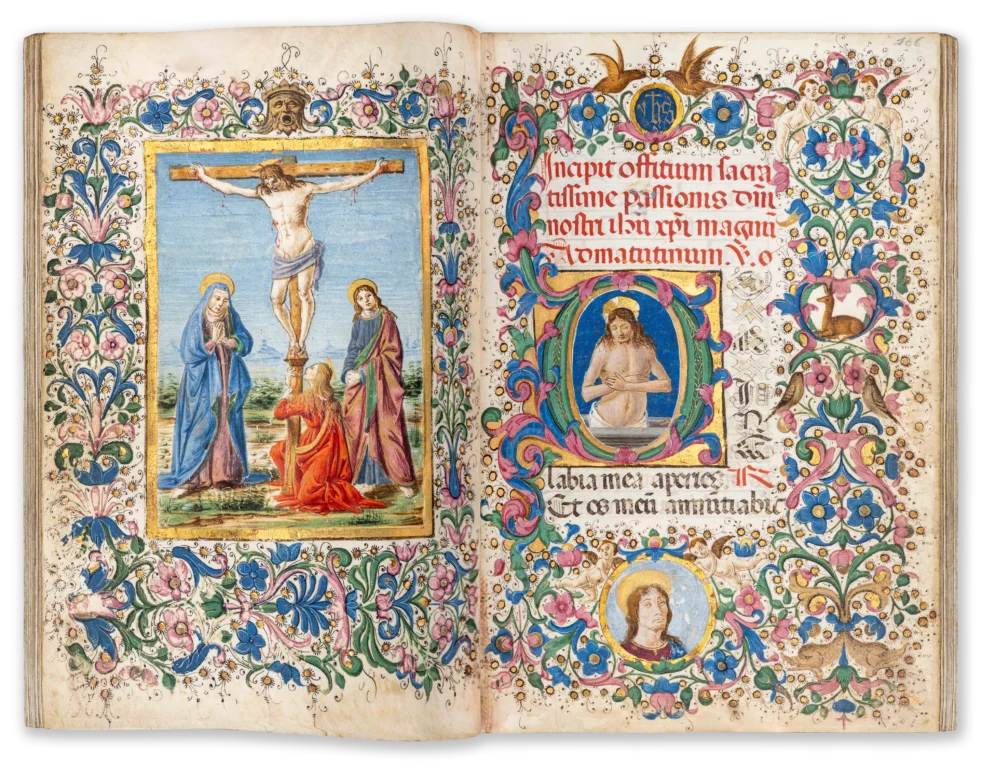 166
yhs
Incipit offitium sacra
tissime passionis dñi
nostri ihu xp̄i magni
Ad matutinum. V. o
D
ñ
labia mea aperies R
Et os meū annūtiabit